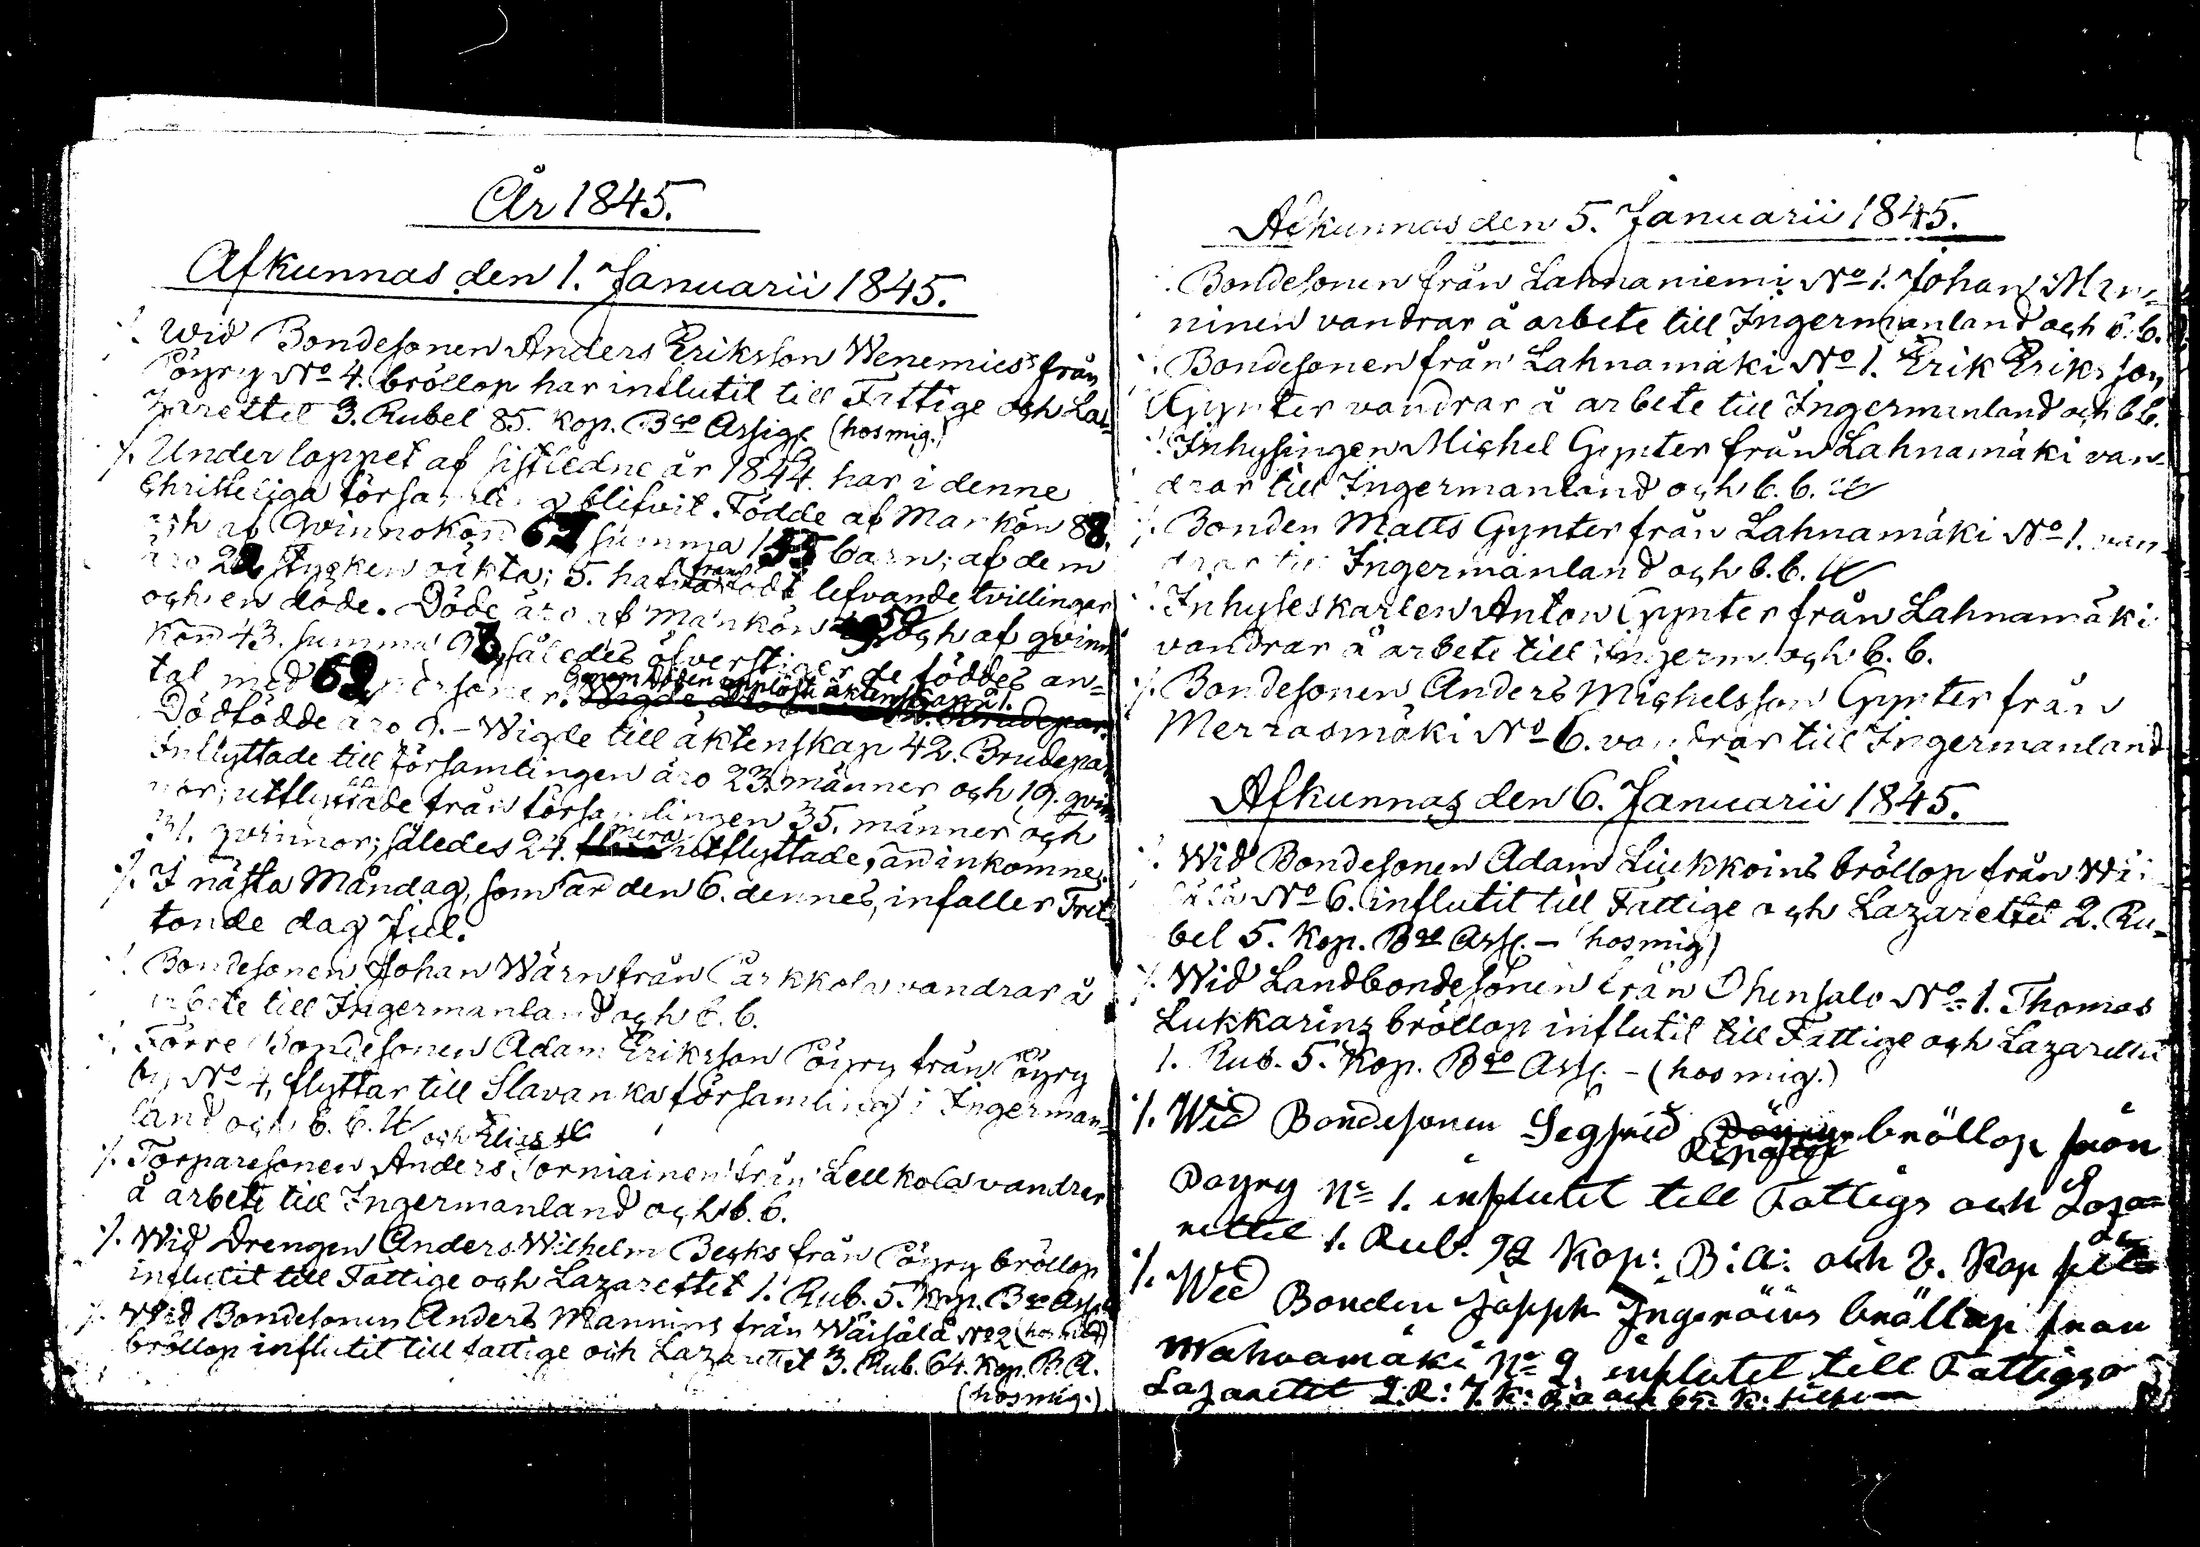 År 1845.
Afkunnas den 1. Januarii 1845.
Wid Bondesonen Anders Eriksson Wenemies's från
Pöyry No 4. bröllop har influtit till Fattige och La=
zarettet 3. Rubel 85. Kop. Bco Assigr (hos mig.)
Under loppet af sistledne år 1844. har i denne
Christeliga församling blifvit Födde af Mankön 88,
och af Qvinnokön 67 summa 155 barn; af dem
äro 22 stycken oäkta; 5. hafva framfödt lefvande tvillingar
och en döde. Döde äro af Mankön och af qvinn
kön 43. summa 93, således öfverstiger de föddes an=
tal med 62 personer. Genom Döden upplöste äktenskap 21.
Dödfödde äro 9. – Wigde till äktenskap 42. Brudepar
Inflyttade till församlingen äro 23. männer och 19. qvin
nor; utflyttade från församlingen 35. männer och
31. qvinnor; således 24. mera utflyttade, än inkomne.
I nästa Måndag, som är den 6. dennes, infaller Tret=
tonde dag Jul.
Bondesonen Johan Wärn från Parkkola vandrar å
arbete till Ingermanland och b. b.
Förre Bondesonen Adam Eriksson Pöyry från Pöyry
by No 4, flyttar till Slavanka församling i Ingerman=
land och b. b.
och Elias
Torparesonen Anders Torniainen från Lellkola vandrar
å arbete till Ingermanland och b. b.
Wid Drengen Anders Wilhelm Becks från Pöyry bröllop
influtit till Fattige och Lazarettet 1. Rub. 5. Kop. Bco Ass
Wid Bondesonen Anders Mannins från Wäisälä No 2 (hos mig)
bröllop influtit till Fattige och Lazarettet 3. Rub. 64. Kop. B. A.
(hos mig.)
Afkunnas den 5. Januarii 1845.
Bondesonen från Lahnaniemi No 1. Johan Man=
ninen vandrar å arbete till Ingermanland och b. b.
Bondesonen från Lahnamäki No 1. Erik Eriksson
Gynter vandrar å arbete till Ingermanland och b b.
Inhysingen Michel Gynter från Lahnamäki van=
drar till Ingermanland och b. b.
Bonden Matts Gynter från Lahnamäki No 1. van=
drar till Ingermanland och b. b.
Inhyseskarlen Anton Gynter från Lahnamäki
vandrar å arbete till Ingerm. och b. b.
Bondesonen Anders Michelsson Gynter från
Merrasmäki No 6. vandrar till Ingermanland
Afkunnas den 6. Januarii 1845.
Wid Bondesonen Adam Liukkoins bröllop från Wäi
sälä No 6. influtit till Fattige och Lazarettet 2. Ru=
bel 5. Kop. Bco Ass. – (hos mig)
Wid Landbondesonen från Ohensalo No 1. Thomas
Lukkarins bröllop influtit till Fattige och Lazarettet
1. Rub. 5. Kop. Bco Ass. – (hos mig.)
Wid Bondesonen Segfrid bröllop från
Pöyry No 1. influtit till Fattige och Laza=
rettet 1. Rub. 92 Kop: B: A: och 2. Kop
Wid Bonden Joseph Ingeröins bröllop från
Wahvamäki No 2. influtit till Fattige o
Lazarettet 2. R: 7. K: B: a och 65. K: silfver